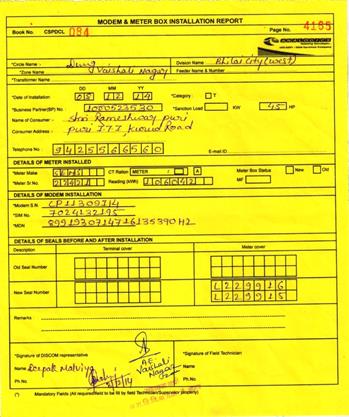 MODEM & METER BOX INSTALLATION REPORT
Book No. CSPDCL 084 Page No. 4195
*Circle Name Durg Division Name Bhilai City (west)
*Zone Name Vaishali Nagar Feeder Name & Number
*Transformer Name
DD MM YY
*Date of Installation 05 12 14 *Category : T
*Business Partner(BP) No. 1000523530 *Sanction Load KW 45 HP
Name of Consumer Shri Rameshwar puri,
Consumer Address puri I.T.I, Road
Telephone No. 9425566560 E-mail ID
DETAILS OF METER INSTALLED
*Meter Make CT Ration METER / A Meter Box Status New Old
*Meter Sr No. Reading (kWh) MF
DETAILS OF MODEM INSTALLATION
*Modem S.N. CP11309114
*SIM No. 7024132195
*MDN 8991930714716135390H2
DETAILS OF SEALS BEFORE AND AFTER INSTALLATION
Description Terminal cover Meter cover
Old Seal Number
New Seal Number L229916
L229915
Remarks
*Signature of DISCOM representative *Signature of Field Technician
A.E.
Vaishali
Nagar
Name Deepak Malviya Name
Ph.No. Ph. No.
(*) Mandatory Fields (All requirement to be fill by field Technician/Supervisor properly)